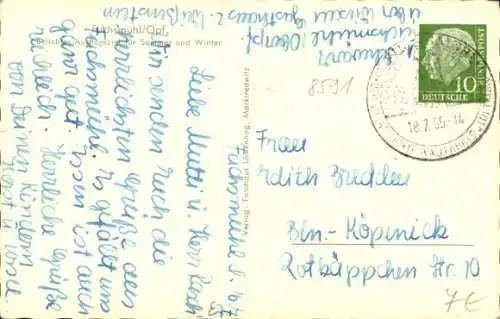 Fuchsmühl/Opf.
Beliebter Ausflugsplatz für Sommer und Winter
über Wiesau Gasthaus z. Weißenstein
Fuchsmühl d. 16.7.
Liebe Mutti u. Herr
Wir senden Euch die
herzlichsten Grüße aus
Fuchsmühl. Es gefällt uns
ganz gut, Essen ist auch
reichlich. Herzliche Grüße
von Deinen Kindern
Horst u. Ursel.
Verlag: Fachhaus Lindenhag, Marktredwitz
8591
10
DEUTSCHE
BUNDESPOST
18.7.55-14
Frau
Edith Bredden
Bln.-Köpenick
Rotkäppchen Str. 10
7€